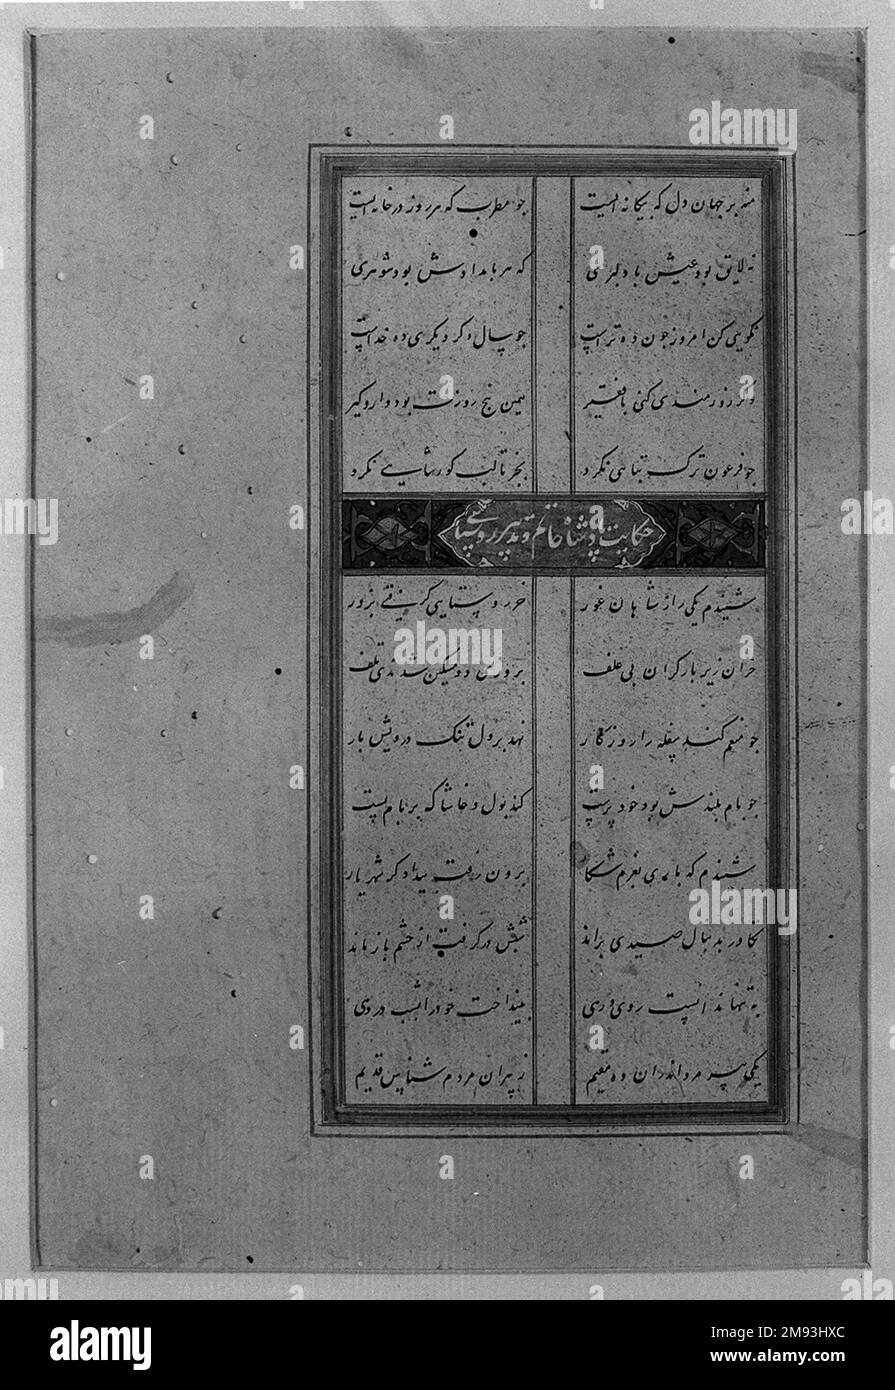 منه بر جهان دل که بیگانه ایست چو مطرب که هر روز در خانه ایست
نه لایق بود عیش با دلبری که هر بامدادش بود شوهری
نکویی کن امروز چون ده تراست چو سال دگر دیگری ده خداست
وگر زورمندی کنی با فقیر همین پنج روزت بود دار و گیر
چو فرعون ترک تباهی نکرد بجز تا لب گور شاهی نکرد
حکایت پادشاه ظالم و پیر روستایی
شنیدم یکی از شاهان غور خر روستایی گرفتی بزور
خران زیر بار گران بی علف بروزی دو مسکین شدندی تلف
چو منعم کند سفله را روزگار نهد بر دل تنک درویش بار
چو بام بلندش بود خود پرست کند بول و خاشاک بر بام پست
شنیدم که باری بعزم شکار برون رفت بیدادگر شهریار
تکاور بدنبال صیدی براند شبش در گرفت از حشم باز ماند
به تنها ندانست روی و رهی بینداخت خود را شب در دهی
یکی پیر مرد اندران ده مقیم ز پیران مردم شناس قدیم
a
alamy
Image ID: 2M93HXC
www.alamy.com